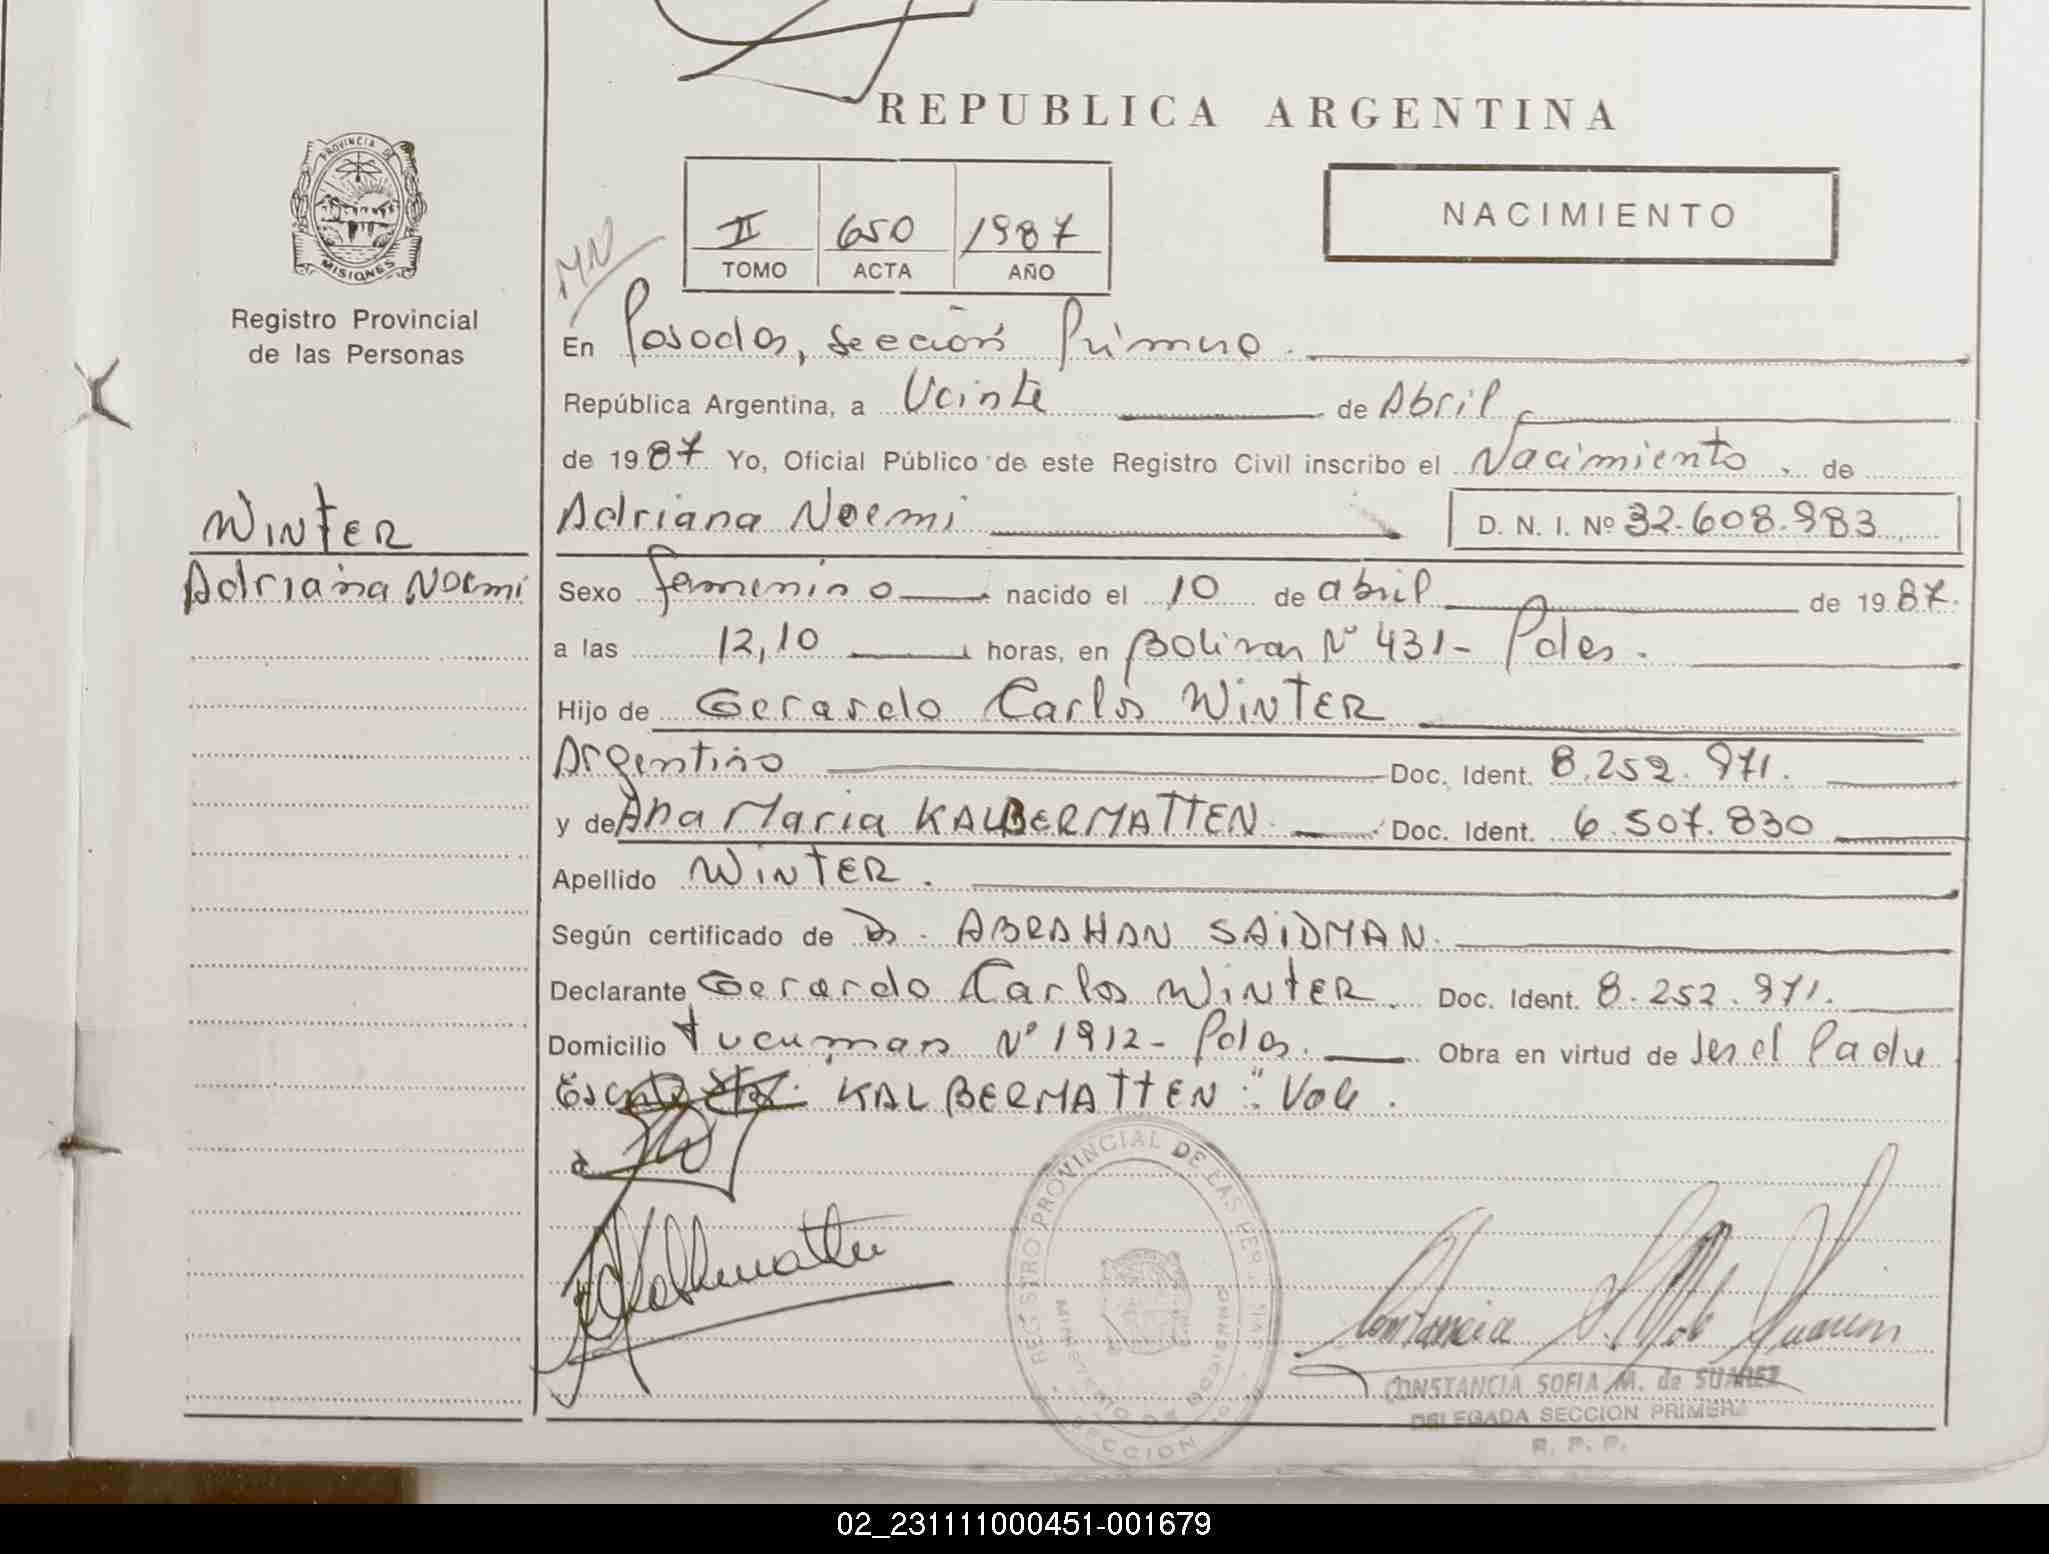 REPUBLICA ARGENTINA
PROVINCIA DE
MISIONES
Registro Provincial
de las Personas
NACIMIENTO
II 650 1987
TOMO ACTA AÑO
MN
En Posadas, Sección Primera.
República Argentina, a Veinte de Abril
de 1987 Yo, Oficial Público de este Registro Civil inscribo el Nacimiento, de
Adriana Noemi D. N. I. Nº 32.608.983
WINTER
Adriana Noemi
Sexo femenino nacido el 10 de abril de 1987.
a las 12,10 horas, en Bolivar Nº 431- Pdas.
Hijo de Gerardo Carlos WINTER
Argentino Doc. Ident. 8.252.971.
y de Ana Maria KALBERMATTEN. Doc. Ident. 6.507.830
Apellido WINTER.
Según certificado de Dr. ABRAHAN SAIDMAN.
Declarante Gerardo Carlos WINTER. Doc. Ident. 8.252.971.
Domicilio tucuman Nº 1912- Pdas. Obra en virtud de Ser el Padre
"KALBERMATTEN": Vale.
REGISTRO PROVINCIAL DE LAS PERSONAS
MINISTERIO DE GOBIERNO
SECCION
CONSTANCIA SOFIA M. de SUAREZ
DELEGADA SECCION PRIMERA
R. P. P.
02_231111000451-001679